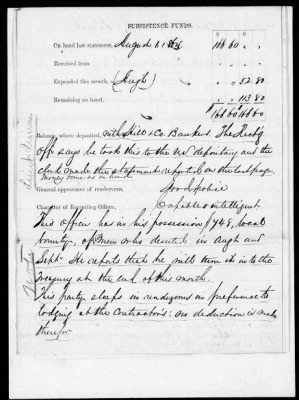 SUBSISTENCE FUNDS.
On hand last statement, August 1st 166 60
Received from
Expended this month, (Augt) 52 80
Remaining on hand, 113 80
$ 166 60 166 60
Balance, where deposited, with Hill & Co. Bankers The Rectg
offr says he took this to the U.S. depository and the
clerk made the statement reported on the last page.
General appearance of rendezvous, Good
Character of Recruiting Officer, Capable & intelligent
This officer has in his possession $748, local
bounty, of men who deserted in Augt and
Sept. He reports that he will turn it in to the
Treasury at the end of this month.
His party sleeps in rendezvous in preference to
lodging at the contractor's: no deduction is made
therefor